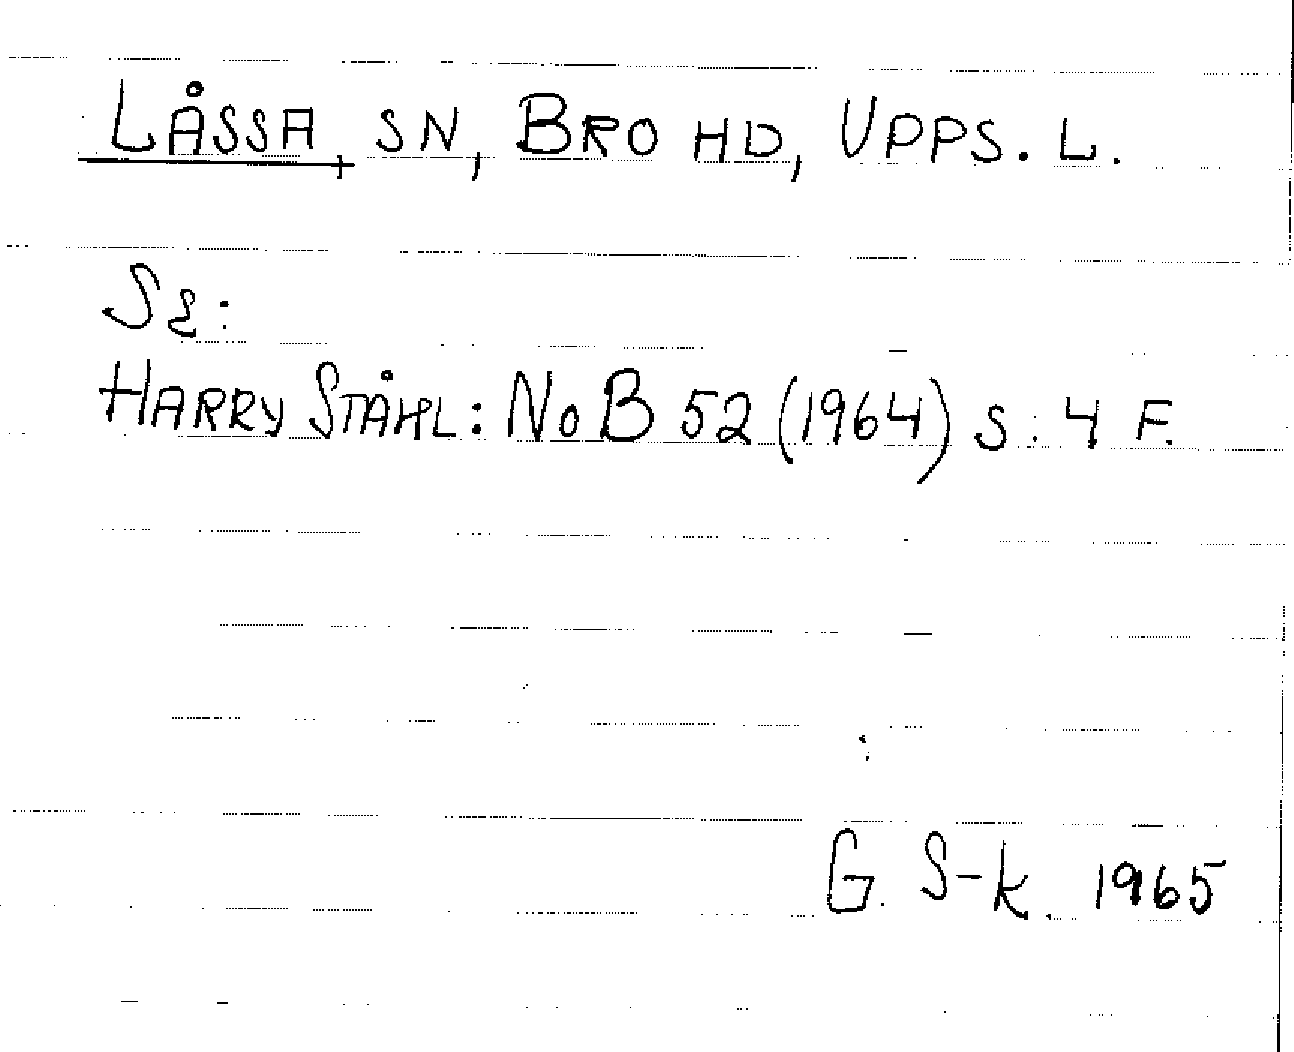 LÅSSA, SN, BRO HD, UPPS. L.
SE:
HARRY STÅHL: NoB 52 (1964) S. 4 F.
G. S-k. 1965